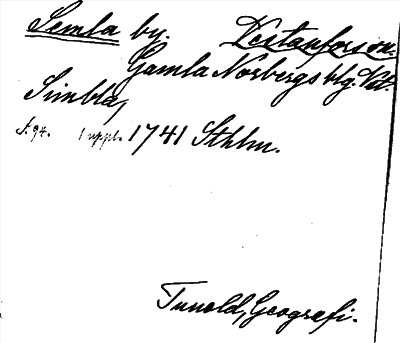 Semla by. Västanfors sn.
Gamla Norbergs blg. Vstl.
Simbla,
s. 94. 1 uppl. 1741 Sthlm.
Tuneld, Geografi.